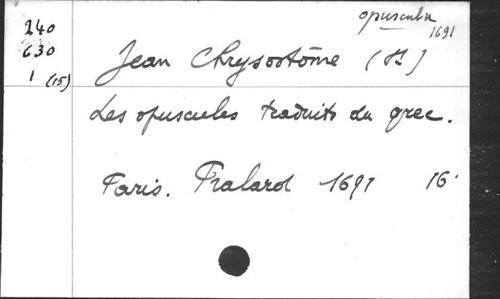 opuscula
1691
240
630
1 (15)
Jean Chrysostôme (St)
Les opuscules traduits du grec.
Paris. Pralard 1691 16°